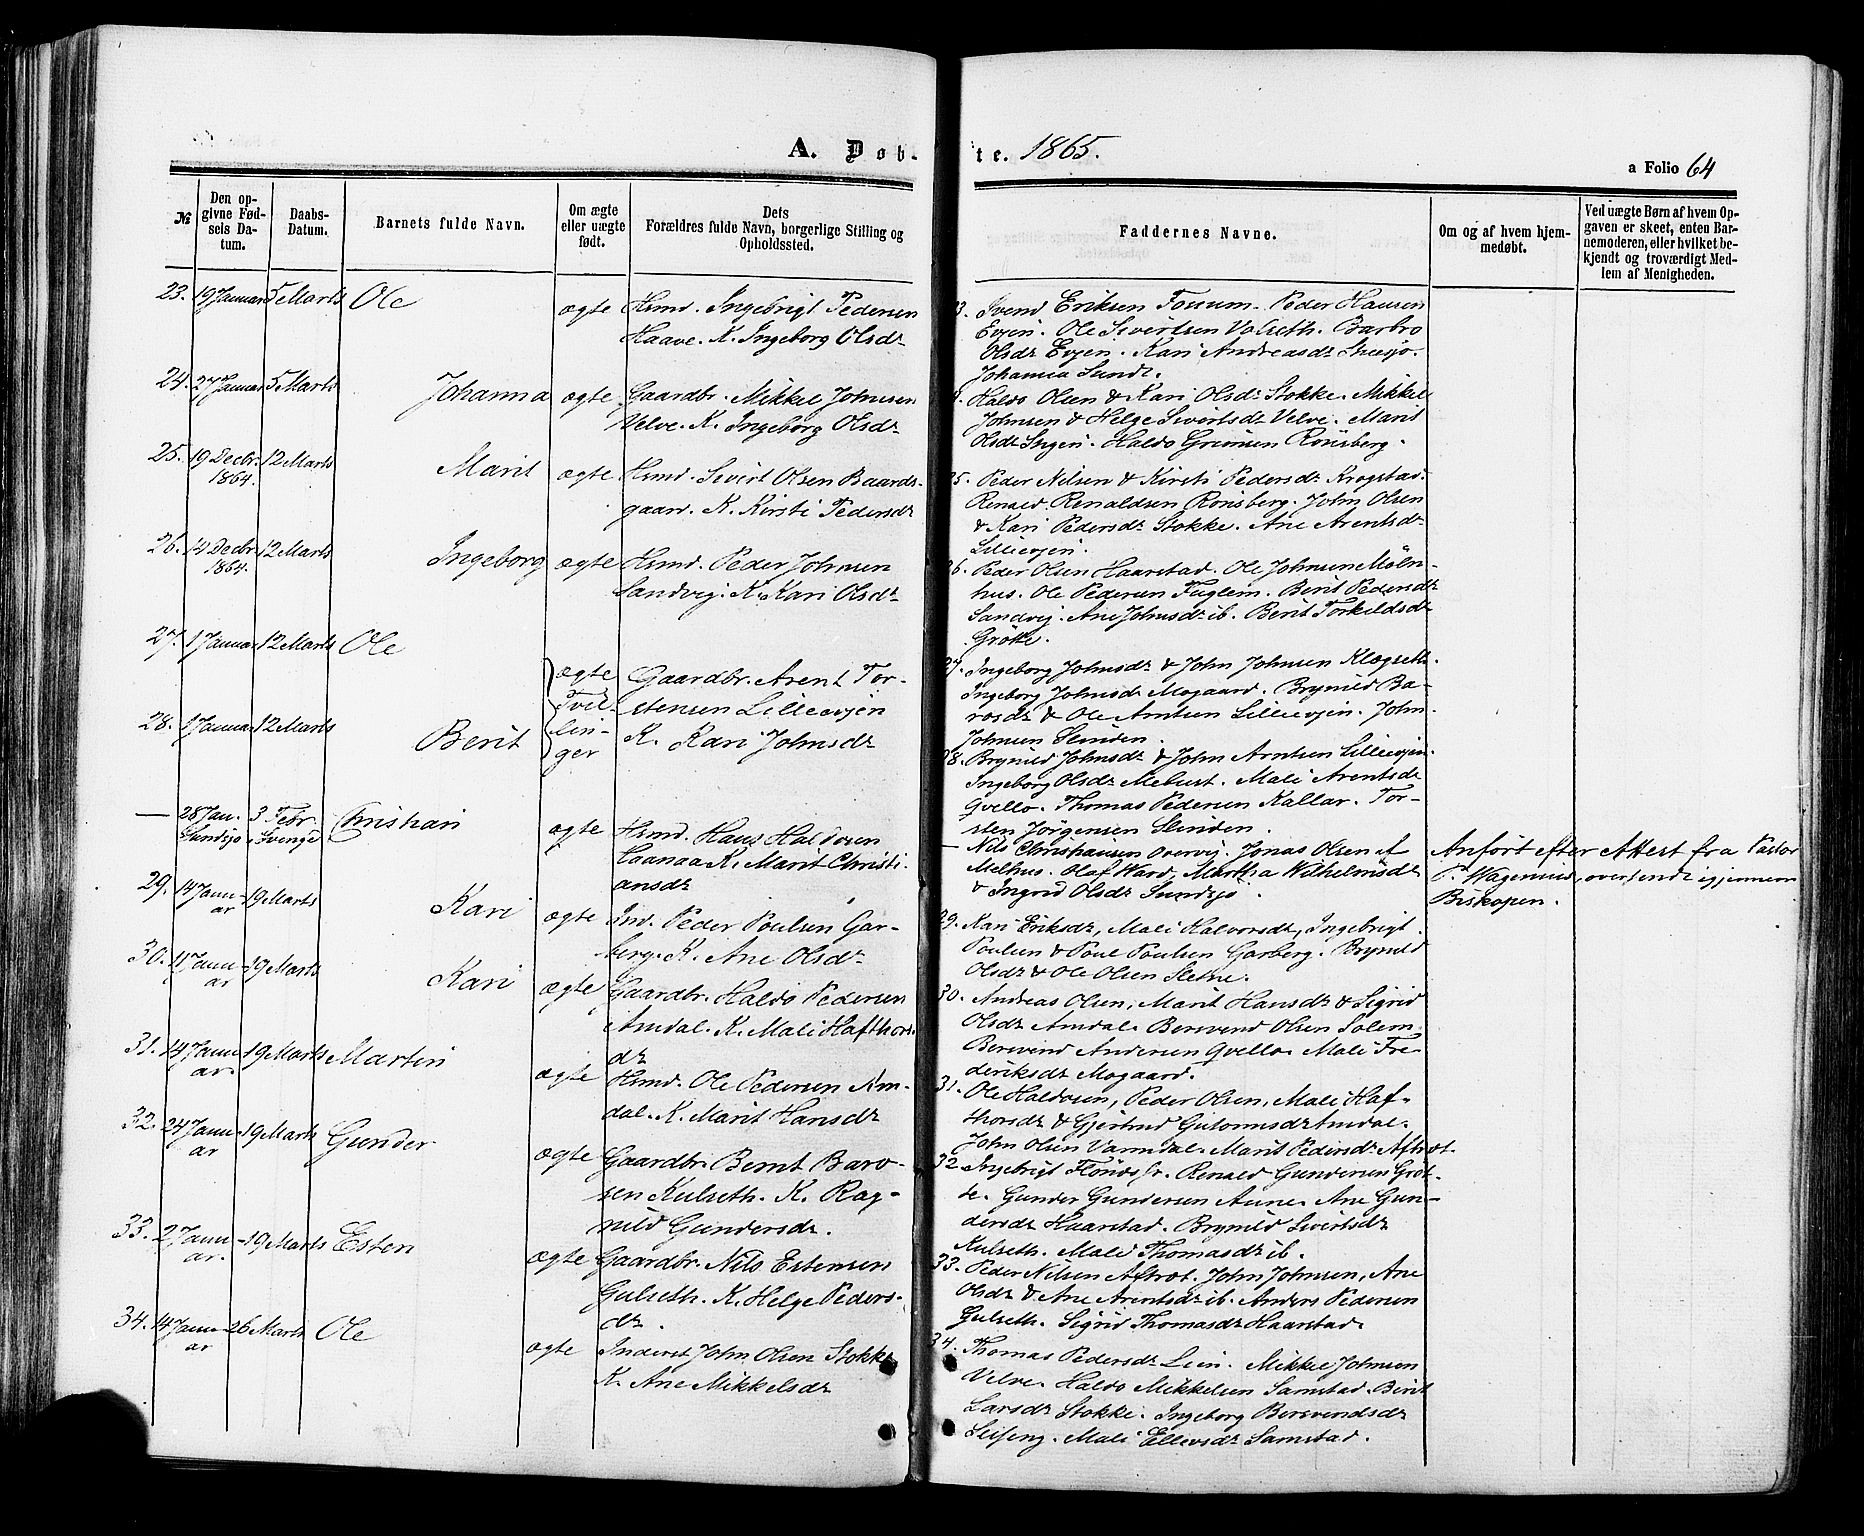 A. Døb-
te. 1865.
a Folio 64
№
Den op-
givne Fød-
sels Da-
tum.
Daabs-
Datum.
Barnets fulde Navn.
Om ægte
eller uægte
født.
Dets
Forældres fulde Navn, borgerlige Stilling og
Opholdssted.
Faddernes Navne.
Om og af hvem hjem-
medøbt.
Ved uægte Børn af hvem Op-
gaven er skeet, enten Bar-
nemoderen, eller hvilket be-
kjendt og troværdigt Med-
lem af Menigheden.
23. 19 Januar 5 Marts Ole ægte Hsmd. Ingebrigt Pedersen
Haave. K. Ingeborg Olsdr
Svend Eriksen Fossum. Peder Hansen
Evjen. Ole Sivertsen Volseth. Barbro
Olsdr Evjen. Kari Andreasdr
Johanna
24. 27 Januar 5 Marts Johanna ægte Gaardbr. Mikkel Johnsen
Velve. K. Ingeborg Olsdr
Haldo Olsen & Kari Olsdr Stokke. Mikkel
Johnsen & Helge Sivertsdr Velve. Marit
Olsdr Haldo Rønsberg.
25. 19 Decbr. 12 Marts Marit ægte Hsmd. Sivert Olsen Baards-
1864.
gaard. K. Kirsti Pedersdr
25. Peder Nilsen & Kirsti Pedersdr Krogstad.
Renald Renaldsen Rønsberg. John Olsen
& Kari Pedersdr Stokke. Ane Arentsdr
Lillievjen.
26. 14 Decbr. 12 Marts Ingeborg ægte Hsmd. Peder Johnsen
1864.
Sandvig. K. Kari Olsdr
26. Peder Olsen Haarstad. Ole Johnsen Møln-
hus. Ole Pedersen Fuglem. Berit Pedersdr
Sandvig. Ane Johnsdr ib. Berit Torkildsdr
Grøtte.
27. 1 Januar 12 Marts Ole
ægte
Tvil-
lin-
ger
Gaardbr. Arent Tor-
stensen Lillievjen
K. Kari Johnsdr
27. Ingeborg Johnsdr & John Johnsen Klegseth.
Ingeborg Johnsd. Mogaard. Brynild Ba-
rosdr & Ole Arntsen Lillievjen. John
Johnsen Slinden.
28. 1 Januar 12 Marts Berit
28. Brynild Johnsdr & John Arntsen Lillievjen.
Ingeborg Olsdr Mebust. Mali Arentsdr
Qvello. Thomas Pedersen Kallar. Tor-
sten Jørgensen Slinden.
— 28 Jan. 3 Febr. Christian ægte Hsmd. Hans Haldosen
Sundsjø Svenge
Laanaa K. Marit Christi-
ansdr
— Nils Christiansen Overvig. Jonas Olsen af
Melhus. Olaf Ward, Martha Wilhelmsdr
& Ingrid Olsdr Sundsjø
Anført efter Attest fra Pastor
Wagenius, oversendt igjennem
Biskopen.
29. 14 Janu- 19 Marts Kari ægte Ind. Peder Poulsen Gar-
ar
berg. K. Ane Olsdr
29. Kari Eriksdr, Mali Halvorsdt, Ingebrigt
Poulsen & Poul Poulsen Garberg. Brynild
Olsdr & Ole Olsen Sletne.
30. 11 Janu- 19 Marts Kari ægte Gaardbr. Haldo Pedersen
ar
Amdal. K. Mali Hafthors-
dr
30. Andreas Olsen, Marit Hansdr & Sigrid
Olsdr Amdal. Berevend Olsen Solem.
Berevend Andersen Qvello. Mali Fre-
deriksdr Mogaard.
31. 14 Janu- 19 Marts Martin ægte Hsmd. Ole Pedersen Am-
ar.
dal. K. Marit Hansdr
31. Ole Haldosen, Peder Olsen, Mali Haf-
thorsdr & Gjertrud Guttormsdr Amdal.
John Olsen Varmdal. Marit Pedersdr Aftret.
32. 24 Janu- 19 Marts Gunder ægte Gaardbr. Bernt Baro-
ar
sen Kulseth. K. Rag-
nild Gundersdr.
32. Ingebrigt Renald Gundersen Grøt-
te. Gunder Gundersen Aune. Ane Gun-
dersdr Haarstad. Brynild Sivertsdr
Kulseth. Mali Thomasdr ib.
33. 2 Janu- 19 Marts Esten ægte Gaardbr. Nils Estensen
ar.
Gulseth. K. Helge Peders-
dr.
33. Peder Nilsen Aftret. John Johnsen, Ane
Olsdr & Ane Arentsdr ib. Anders Pedersen
Gulseth. Sigrid Thomasdr Haarstad.
34. 14 Janu- 26 Marts Ole ægte Inderst John Olsen Stokke
ar
K. Ane Mikkelsdr
34. Thomas Pedersdr Lien. Mikkel Johnsen
Velve. Haldo Mikkelsen Samstad. Berit
Larsdr Stokke. Ingeborg Berevendsdr
Selseng. Mali Ellevsdr Samstad.